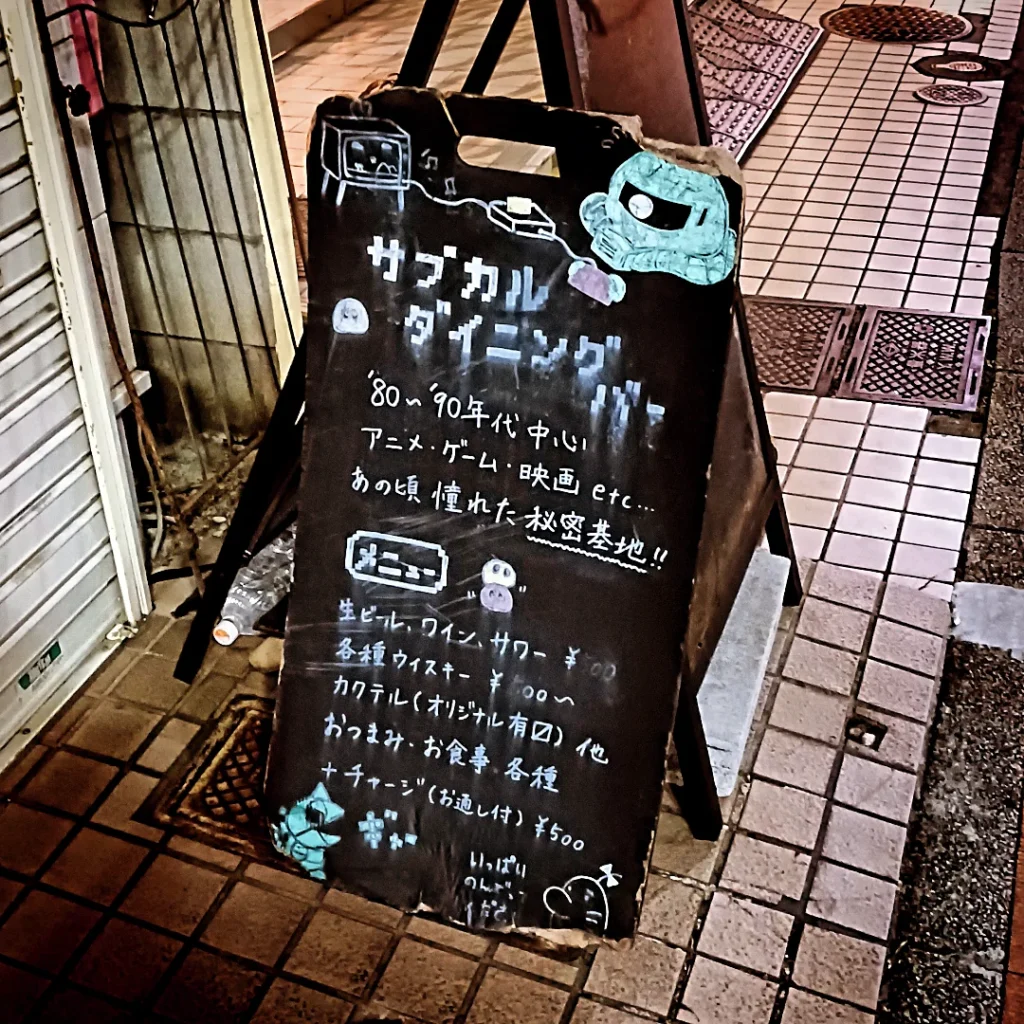 サブカル
ダイニング
バー
'80〜'90年代 中心
アニメ・ゲーム・映画 etc...
あの頃 憧れた 秘密基地!!
メニュー
生ビール、ワイン、サワー ¥
各種ウイスキー ¥
カクテル(オリジナル有〼) 他
おつまみ・お食事 各種
+チャージ(お通し付) ¥500
いっぱい